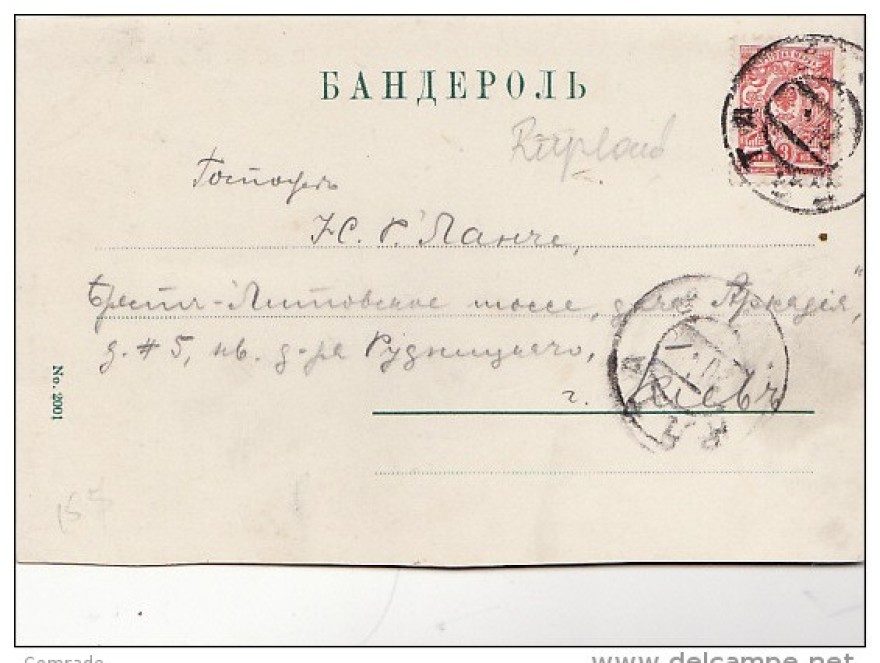 БАНДЕРОЛЬ
Rußland
Господину
Ланге,
Брестъ-Литовское шоссе, дача „Аркадія“,
д. # 5, кв. д-ра Рудницкаго,
г. Кіевъ
No. 2001
157
Comrade
www.delcampe.net